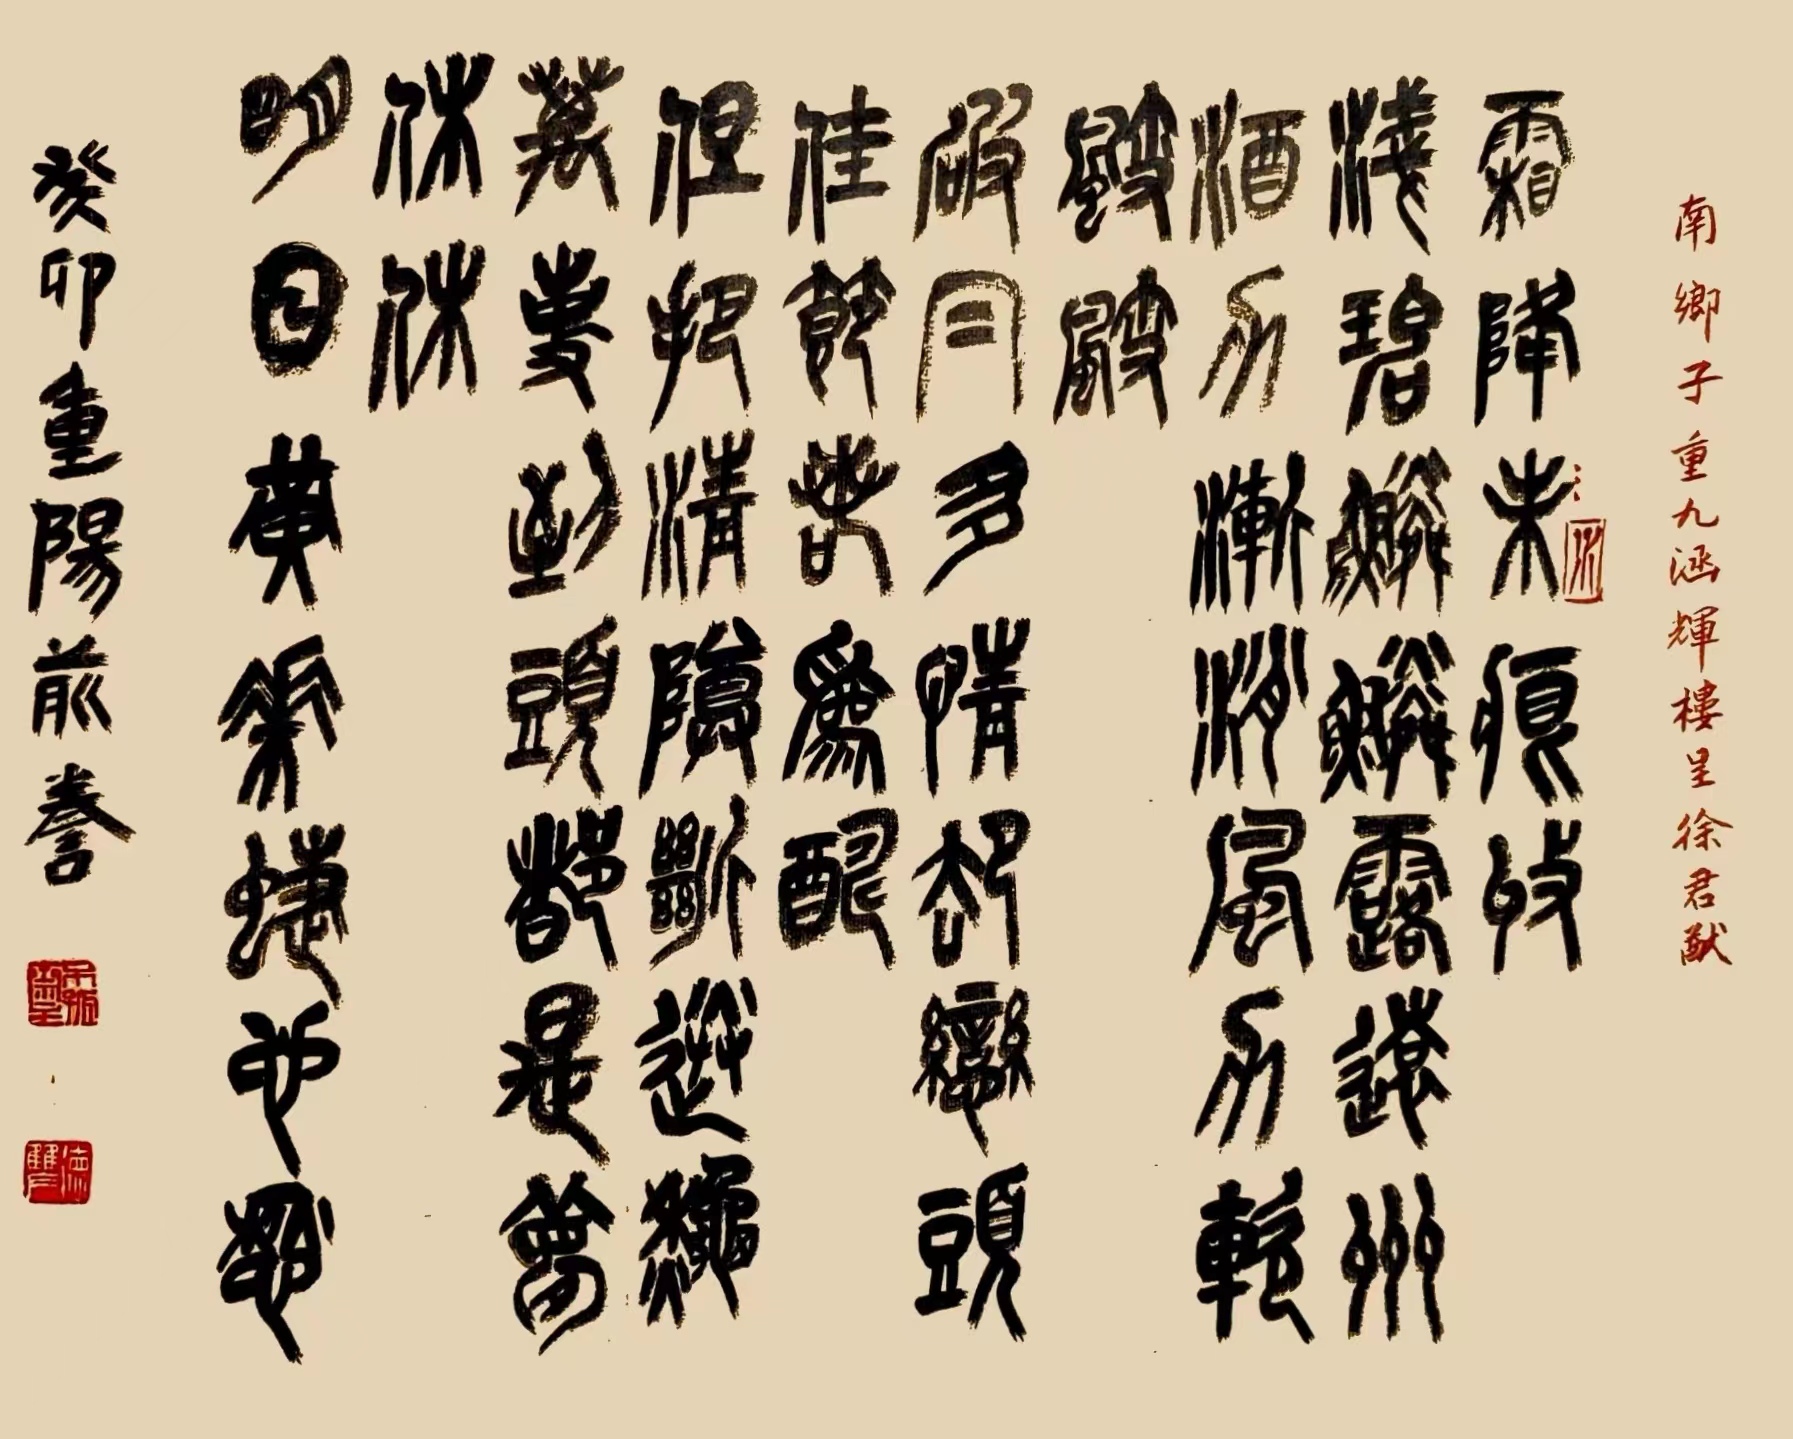 南鄉子重九涵輝樓呈徐君猷
霜降未痕收
水
淺碧鱗鱗露遠州
酒力漸消風力軟
颼颼
破冃多情却戀頭
佳節若為配
但把清尊斷送龝
萬事到頭都是夢
休休
明日黃花蝶也愁
癸卯重陽前謄